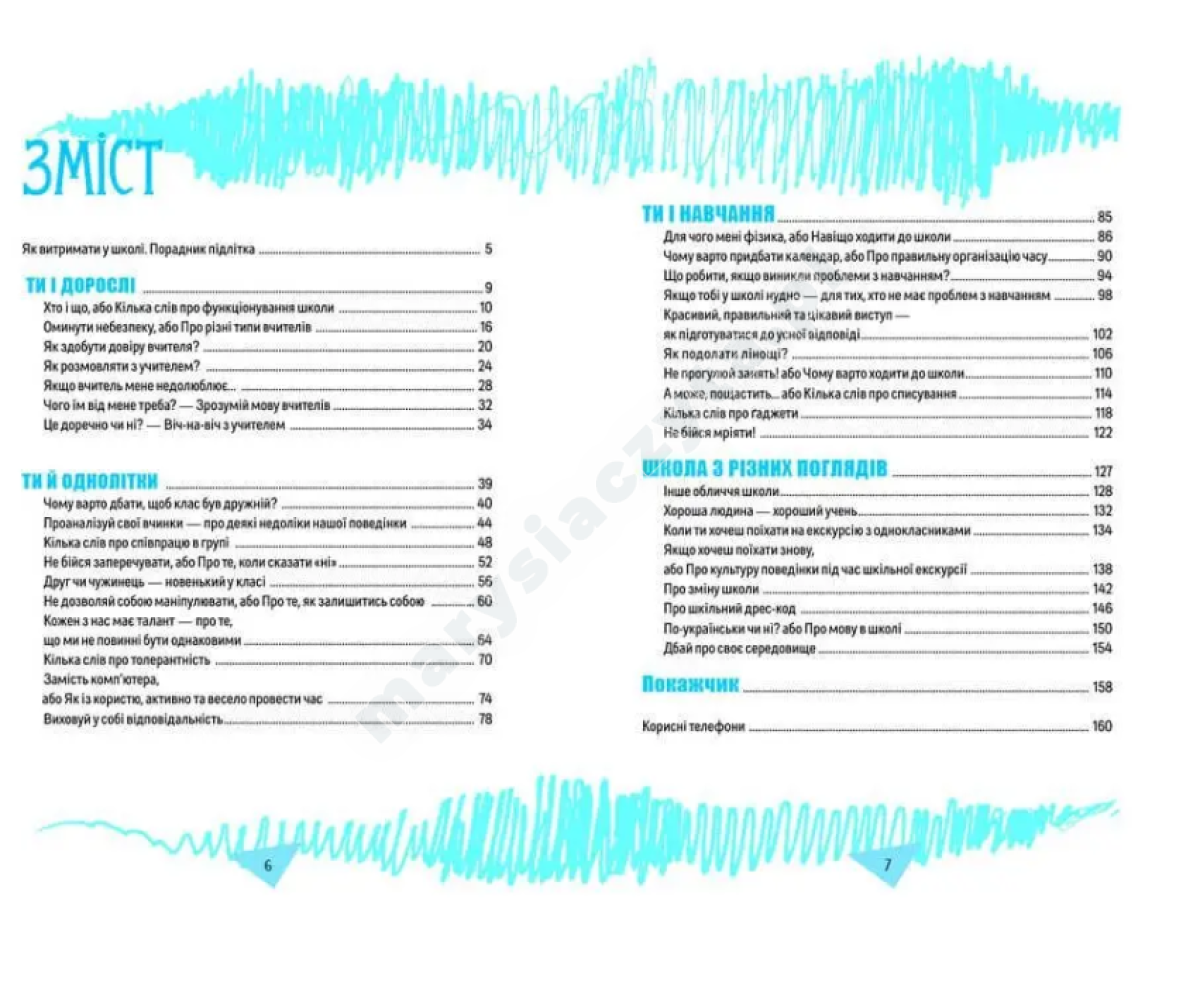 ЗМІСТ
Як витримати у школі. Порадник підлітка 5
ТИ І ДОРОСЛІ 9
Хто і що, або Кілька слів про функціонування школи 10
Оминути небезпеку, або Про різні типи вчителів 16
Як здобути довіру вчителя? 20
Як розмовляти з учителем? 24
Якщо вчитель мене недолюблює... 28
Чого їм від мене треба? — Зрозумій мову вчителів 32
Це доречно чи ні? — Віч-на-віч з учителем 34
ТИ Й ОДНОЛІТКИ 39
Чому варто дбати, щоб клас був дружній? 40
Проаналізуй свої вчинки — про деякі недоліки нашої поведінки 44
Кілька слів про співпрацю в групі 48
Не бійся заперечувати, або Про те, коли сказати «ні» 52
Друг чи чужинець — новенький у класі 56
Не дозволяй собою маніпулювати, або Про те, як залишитись собою 60
Кожен з нас має талант — про те,
що ми не повинні бути однаковими 64
Кілька слів про толерантність 70
Замість комп'ютера,
або Як із користю, активно та весело провести час 74
Виховуй у собі відповідальність 78
6
ТИ І НАВЧАННЯ 85
Для чого мені фізика, або Навіщо ходити до школи 86
Чому варто придбати календар, або Про правильну організацію часу 90
Що робити, якщо виникли проблеми з навчанням? 94
Якщо тобі у школі нудно — для тих, хто не має проблем з навчанням 98
Красивий, правильний та цікавий виступ —
як підготуватися до усної відповіді 102
Як подолати лінощі? 106
Не прогулюй занять! або Чому варто ходити до школи 110
А може, пощастить... або Кілька слів про списування 114
Кілька слів про ґаджети 118
Не бійся мріяти! 122
ШКОЛА З РІЗНИХ ПОГЛЯДІВ 127
Інше обличчя школи 128
Хороша людина — хороший учень 132
Коли ти хочеш поїхати на екскурсію з однокласниками 134
Якщо хочеш поїхати знову,
або Про культуру поведінки під час шкільної екскурсії 138
Про зміну школи 142
Про шкільний дрес-код 146
По-українськи чи ні? або Про мову в школі 150
Дбай про своє середовище 154
Покажчик 158
Корисні телефони 160
7